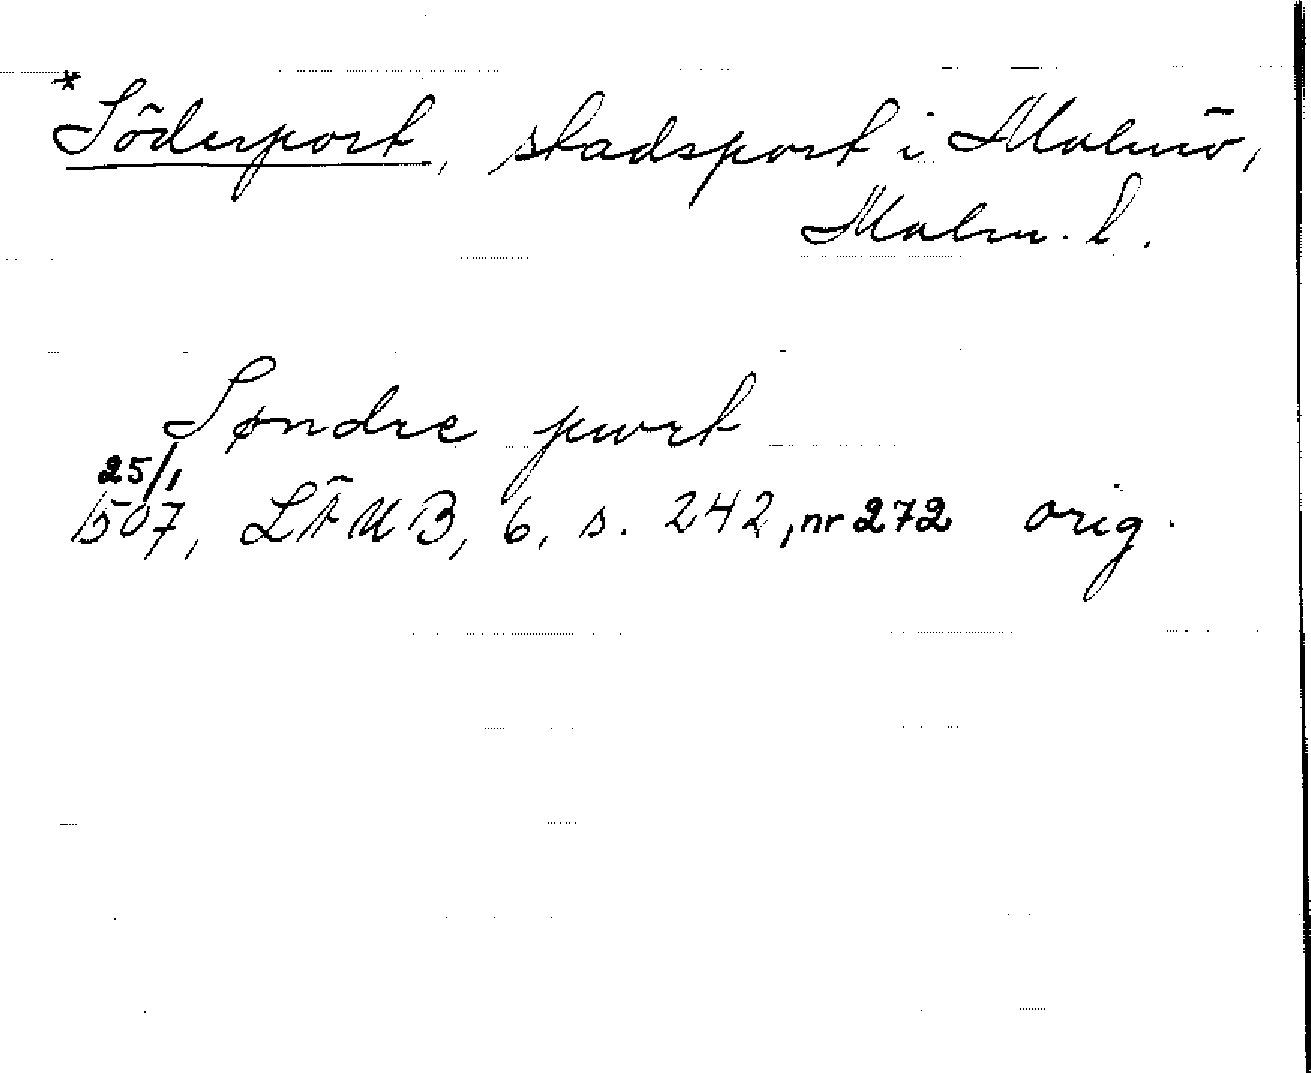 *Söderport, stadsport i Malmö,
Malm. l.
Søndre pwrt
25/1
1507, LÄUB, 6, s. 242, nr 272 orig.